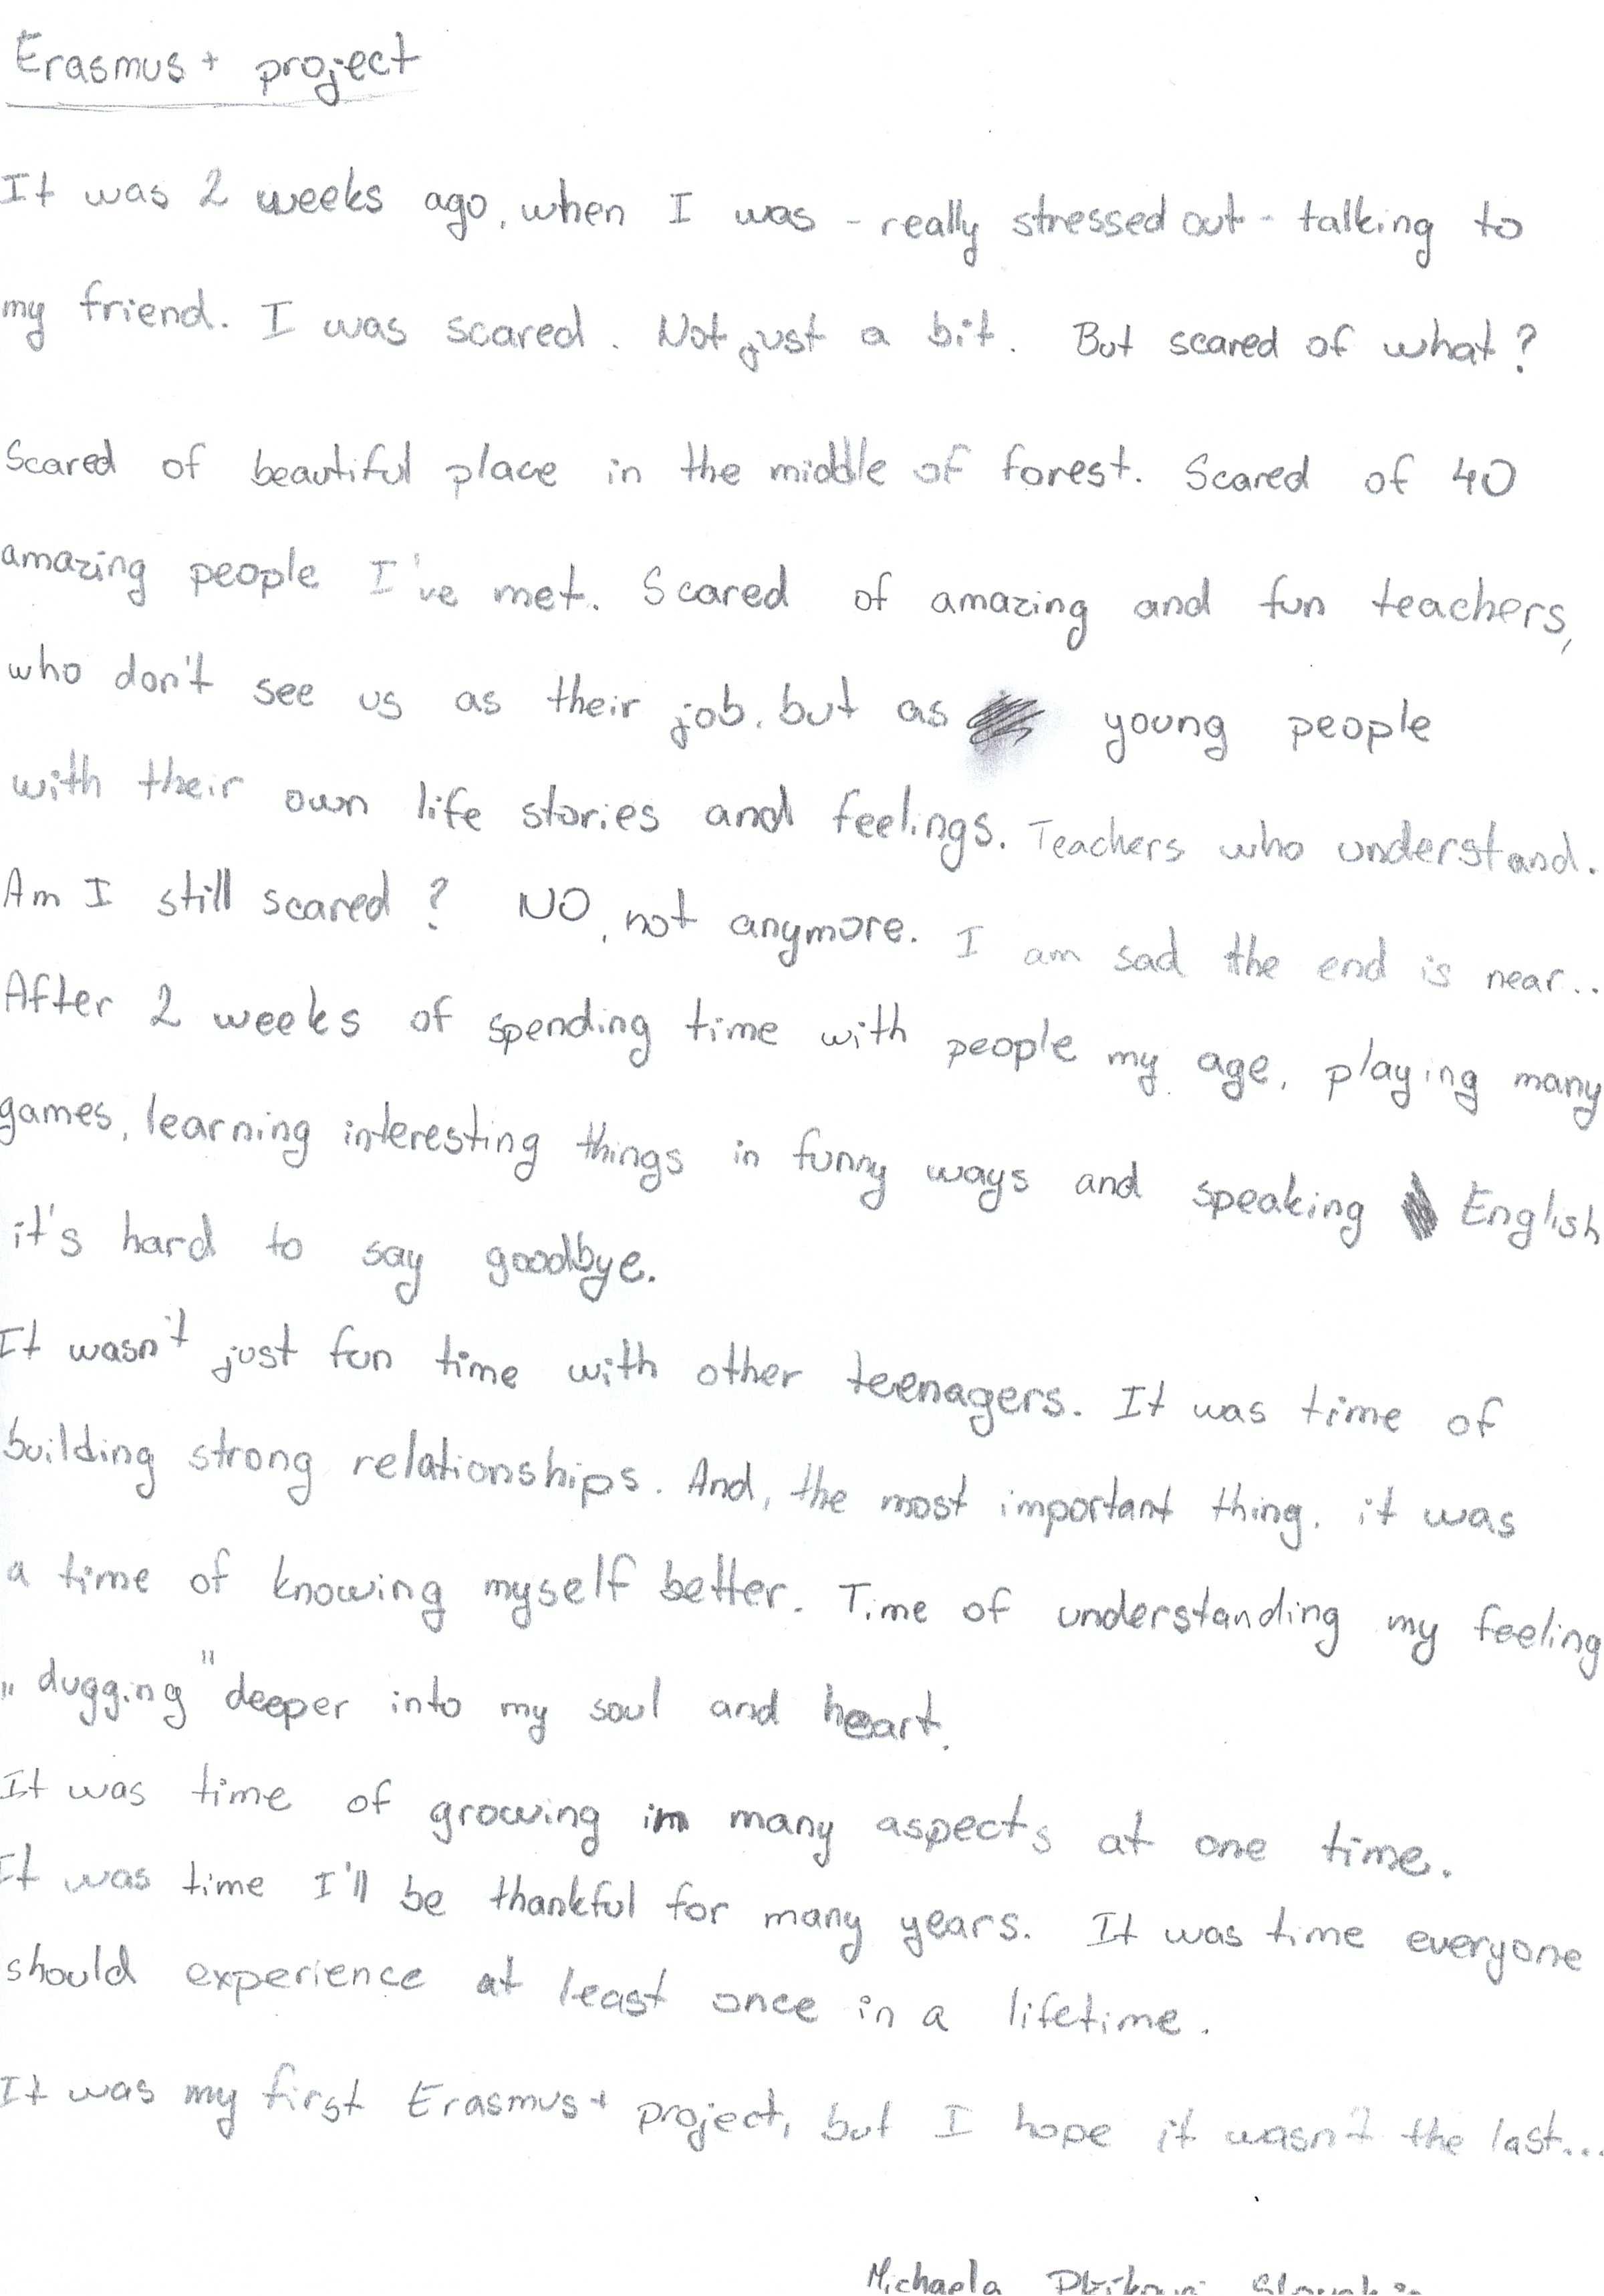 Erasmus+ project
It was 2 weeks ago, when I was - really stressed out - talking to
my friend. I was scared. Not just a bit. But scared of what?
Scared of beautiful place in the middle of forest. Scared of 40
amazing people I've met. Scared of amazing and fun teachers,
who don't see us as their job, but as young people
with their own life stories and feelings. Teachers who understand.
Am I still scared? NO, not anymore. I am sad the end is near..
After 2 weeks of spending time with people my age, playing many
games, learning interesting things in funny ways and speaking English
it's hard to say goodbye.
It wasn't just fun time with other teenagers. It was time of
building strong relationships. And, the most important thing, it was
a time of knowing myself better. Time of understanding my feeling
„dugging" deeper into my soul and heart.
It was time of growing in many aspects at one time.
It was time I'll be thankful for many years. It was time everyone
should experience at least once in a lifetime.
It was my first Erasmus+ project, but I hope it wasn't the last...
Michaela